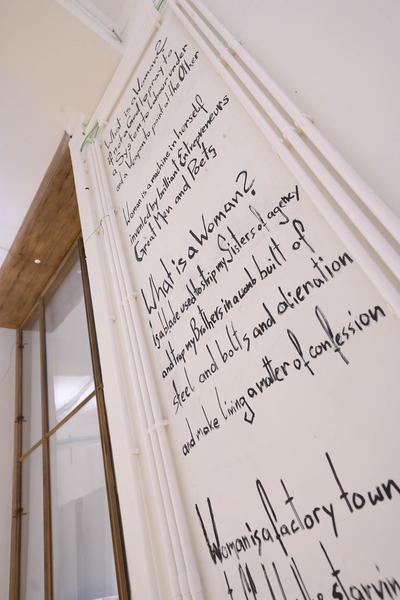 What is a Woman?
if not a God to pray to
a System to Labour under
and a Weapon to point at the Other
Woman is a machine in herself
invented by brilliant Entrepreneurs
Great Men and Poets
What is a Woman?
Is a blade used to strip my Sisters of agency
and trap my Brothers in a womb built of
steel and bolts and alienation
and make living a matter of confession
Woman is a factory town
starving